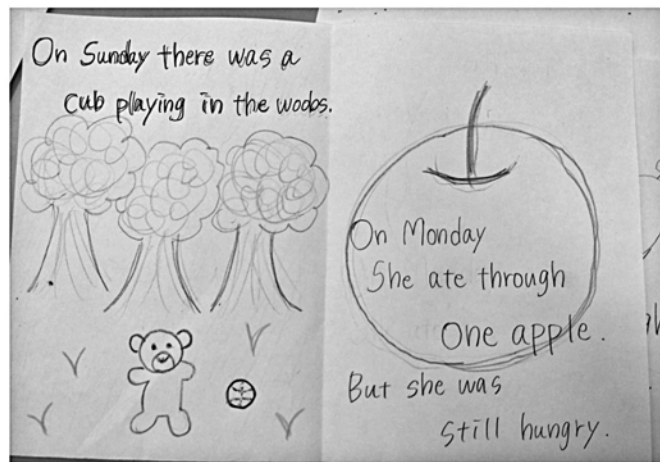 On Sunday there was a
cub playing in the woods.
On Monday
She ate through
One apple.
But she was
still hungry.